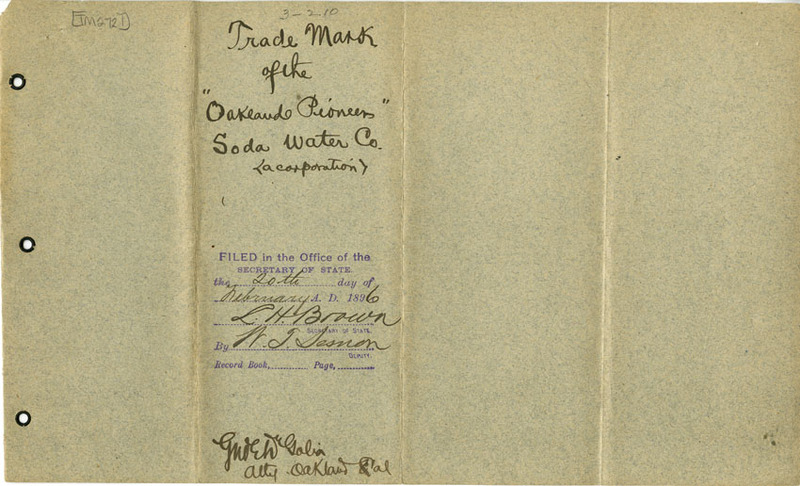 [TM272]
3-2-10
Trade Mark
of the
"Oakland Pioneer"
Soda Water Co.
(a corporation)
FILED in the Office of the
SECRETARY OF STATE.
the 20th day of
February A. D. 1896
L. H. Brown
SECRETARY OF STATE.
By W. T.
DEPUTY.
Record Book, Page,
Atty Oakland Cal